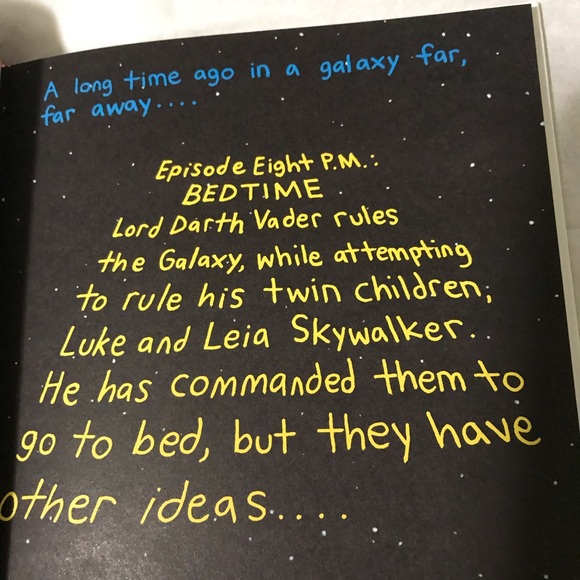 A long time ago in a galaxy far,
far away....
Episode Eight P.M.:
BEDTIME
Lord Darth Vader rules
the Galaxy, while attempting
to rule his twin children,
Luke and Leia Skywalker.
He has commanded them to
go to bed, but they have
other ideas....